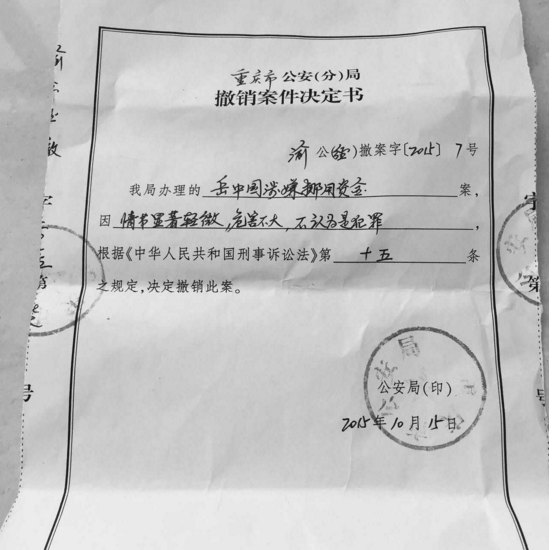 重庆市公安(分)局
撤销案件决定书
渝公(经)撤案字[2015]7号
我局办理的岳中国涉嫌挪用资金案,
因情节显著轻微,危害不大,不认为是犯罪,
根据《中华人民共和国刑事诉讼法》第十五条
之规定,决定撤销此案。
公安局(印)
2015年10月15日